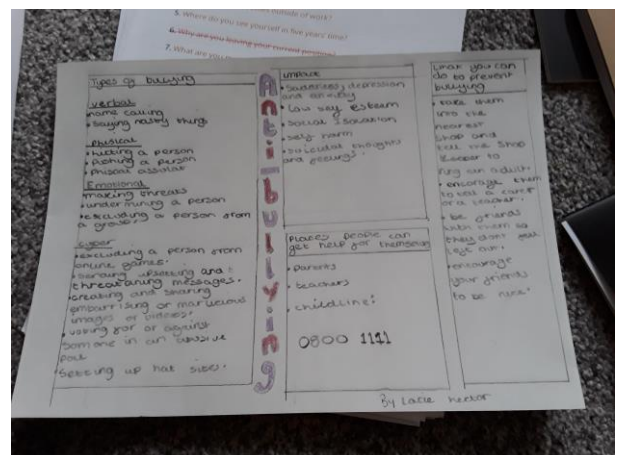 5. Where do you see yourself in five years' time?
6. Why are you leaving your current position?
7. What are you
Types of bullying
verbal
• name calling
• saying nasty things
Phisical
• hitting a person
• Pushing a person
• Phiscal assiolat
Emotional
making threats
• undermining a person
• excluding a person from
a group.
cyber
• excluding a person from
online games.
• sending upsetting and
threataning messages.
• creating and sharing
embarrising or marliceious
images or videos.
• voting for or against
someone in an abusive
poll
setting up hat sites.
Anti-bullying
impace
• Saddness, depression
and anxiety
• Low self esteem
• Social Isolation
• self harm
• suicidal thoughts
and feelings.
Places people can
get help for themselfs
• Parents
• teachers
• childline:
0800 1111
what you can
do to prevent
bullying
• take them
into the
nearest
shop and
tell the shop
keeper to
ring an adult.
• encorage them
to tell a carer
or a teacher.
• be friends
with them so
they dont feel
left out.
• encourage
your friends
to be nice!
By Lacie Hector